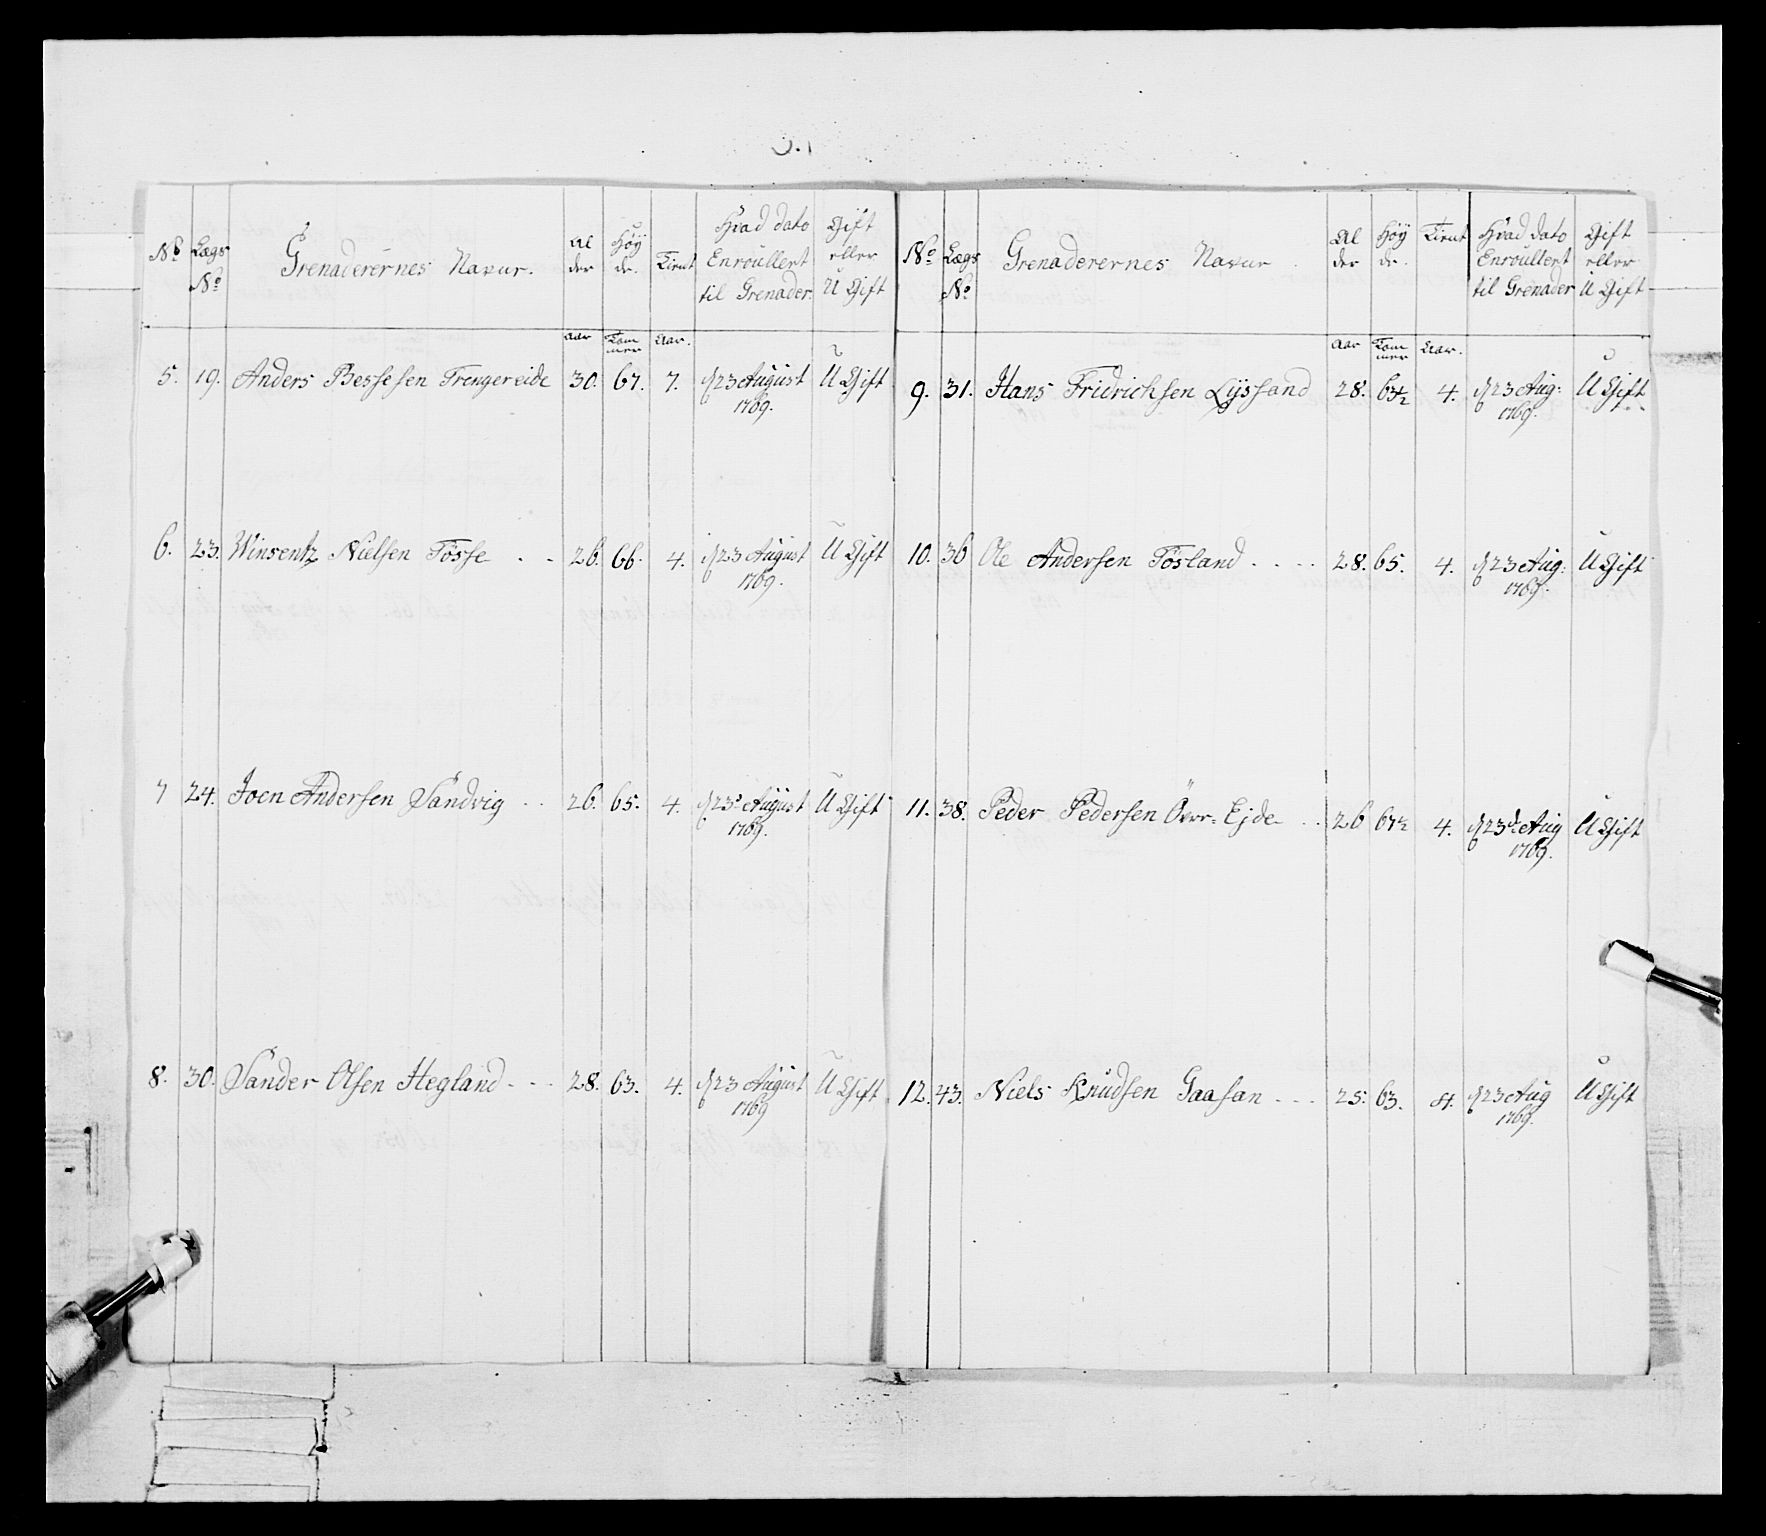 No Lægs No Grenaderernes Navne. Al der Høÿ de. Tient Hvad dato Enroullert til Grenader Gift eller U Gift
Aar Tom mer Aar.
5. 19. Anders Bessesen Trengereide 30. 67. 7. d 23 August 1769. U Gift
6. 23. Winsentz Nielsen Tösse - - 26. 66. 4. d 23 August 1769. U Gift
7 24. Joen Andersen Sandvig - - 26. 65. 4. d 23de August 1769. U Gift
8. 30. Sander Olsen Hegland - - - 28. 63. 4. d 23 August 1769 U Gift
No Lægs No Grenaderernes Navne Al der Høÿ de. Tient Hvad dato Enroullert til Grenader Gift eller U Gift
Aar Tom mer Aar.
9. 31. Hans Fridrichsen Lÿssand 28. 63½ 4. d 23 Aug: 1769. U Gift
10. 36 Ole Andersen Tösland - - - - 28. 65. 4. d 23 Aug: 1769. U Gift
11. 38. Peder Pedersen Övre-Ejde - - 26 67½ 4. d 23de Aug 1769. U Gift
12. 43. Niels Knudsen Gaasan - - - 25. 63. 4. d 23 Aug 1769. U Gift